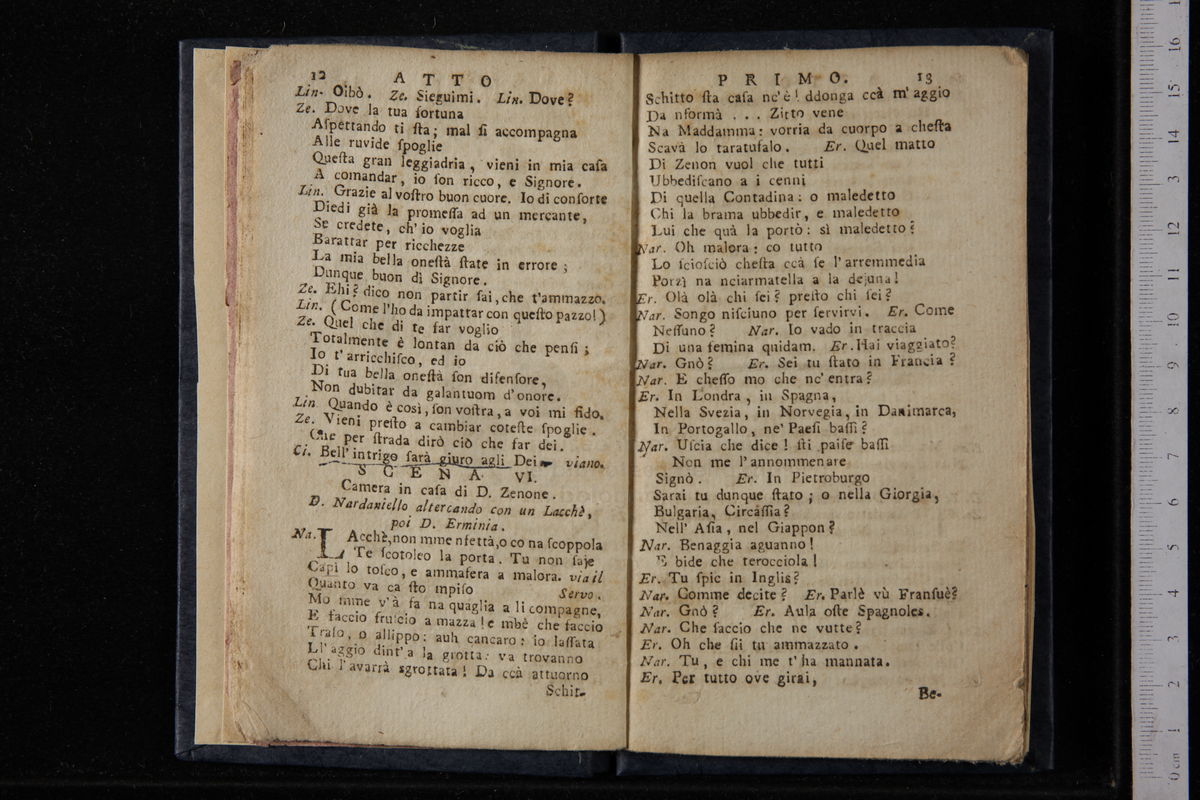 12 ATTO
Lin. Oibò. Ze. Sieguimi. Lin. Dove?
Ze. Dove la tua fortuna
Aſpettando ti ſta; mal ſi accompagna
Alle ruvide ſpoglie
Queſta gran leggiadria, vieni in mia caſa
A comandar, io ſon ricco, e Signore.
Lin. Grazie al voſtro buon cuore. Io di conſorte
Diedi già la promeſſa ad un mercante,
Se credete, ch' io voglia
Barattar per ricchezze
La mia bella oneſtà ſtate in errore;
Dunque buon dì Signore.
Ze. Ehi? dico non partir ſai, che t'ammazzo.
Lin. (Come l'ho da impattar con queſto pazzo!)
Ze. Quel che di te far voglio
Totalmente è lontan da ciò che penſi;
Io t'arricchiſco, ed io
Di tua bella oneſtà ſon difenſore,
Non dubitar da galantuom d'onore.
Lin Quando è così, ſon voſtra, a voi mi fido.
Ze. Vieni preſto a cambiar coteſte ſpoglie.
Che per ſtrada dirò ciò che far dei.
Ci. Bell'intrigo ſarà giuro agli Dei. viano.
SCENA VI.
Camera in caſa di D. Zenone.
D. Nardaniello altercando con un Lacchè,
poi D. Erminia.
Na. LAcchè, non mme nfettà, o co na ſcoppola
Te ſcotoleo la porta. Tu non ſaje
Capì lo toſco, e ammafera a malora. via il
Quanto va ca ſto mpiſo Servo.
Mo mme v'à fa na quaglia a li compagne,
E faccio fruſcio a mazza! e mbè che faccio
Traſo, o allippo: auh cancaro: io laſſata
Ll'aggio dint'a la grotta: va trovanno
Chi l'avarrà sgrottata! Da ccà attuorno
Schit-
PRIMO. 13
Schitto ſta caſa nc'è! ddonga ccà m'aggio
Da nformà . . . Zitto vene
Na Maddamma: vorria da cuorpo a cheſta
Scavà lo taratufalo. Er. Quel matto
Di Zenon vuol che tutti
Ubbediſcano a i cenni
Di quella Contadina: o maledetto
Chi la brama ubbedir, e maledetto
Lui che quà la portò: sì maledetto?
Nar. Oh malora: co tutto
Lo ſcioſciò cheſta ccà ſe l'arremmedia
Porzì na nciarmatella a la dejuna!
Er. Olà olà chi ſei? preſto chi ſei?
Nar. Songo niſciuno per ſervirvi. Er. Come
Neſſuno? Nar. Io vado in traccia
Di una femina quidam. Er. Hai viaggiato?
Nar. Gnò? Er. Sei tu ſtato in Francia?
Nar. E cheſſo mo che nc'entra?
Er. In Londra, in Spagna,
Nella Svezia, in Norvegia, in Danimarca,
In Portogallo, ne' Paeſi baſſi?
Nar. Uſcia che dice! ſti paiſe baſſi
Non me l'annommenare
Signò. Er. In Pietroburgo
Sarai tu dunque ſtato; o nella Giorgia,
Bulgaria, Circaſſia?
Nell' Aſia, nel Giappon?
Nar. Benaggia aguanno!
E bide che terocciola!
Er. Tu ſpic in Inglis?
Nar. Comme decite? Er. Parlè vù Franſuè?
Nar. Gnò? Er. Aula oſte Spagnoles.
Nar. Che faccio che ne vutte?
Er. Oh che ſii tu ammazzato.
Nar. Tu, e chi me t'ha mannata.
Er. Per tutto ove girai,
Be-